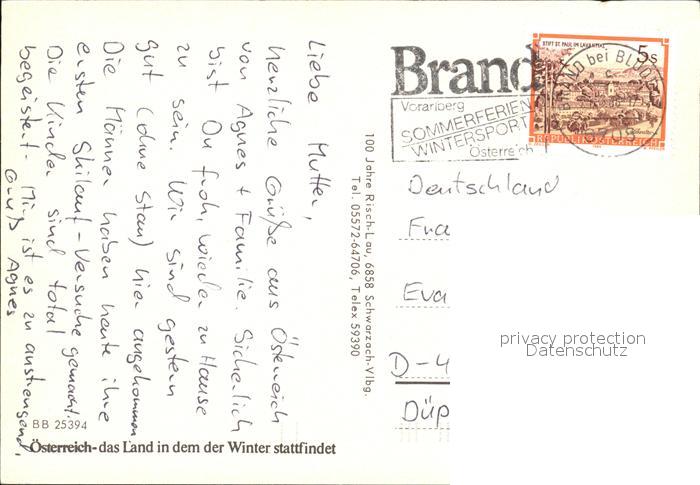 Liebe Mutter,
herzliche Grüße aus Österreich
von Agnes + Familie. Sicherlich
bist Du froh, wieder zu Hause
zu sein. Wir sind gestern
gut (ohne Stau) hier angekommen
Die Männer haben heute ihre
ersten Skilauf-Versuche gemacht.
Die Kinder sind total
begeistert. Mir ist es zu anstrengend.
Gruß Agnes
BB 25394
Österreich-das Land in dem der Winter stattfindet
100 Jahre Risch-Lau, 6858 Schwarzach-Vlbg.
Tel. 05572-64706, Telex 59390
Brand
Vorarlberg
SOMMERFERIEN
WINTERSPORT
Österreich
STIFT ST. PAUL IM LAVANTTAL
5s
REPUBLIK ÖSTERREICH
BRAND bei BLUD
Deutschland
Fra
Eva
D-4
Düp
privacy protection
Datenschutz